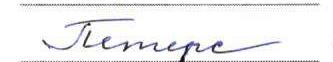 Петерс